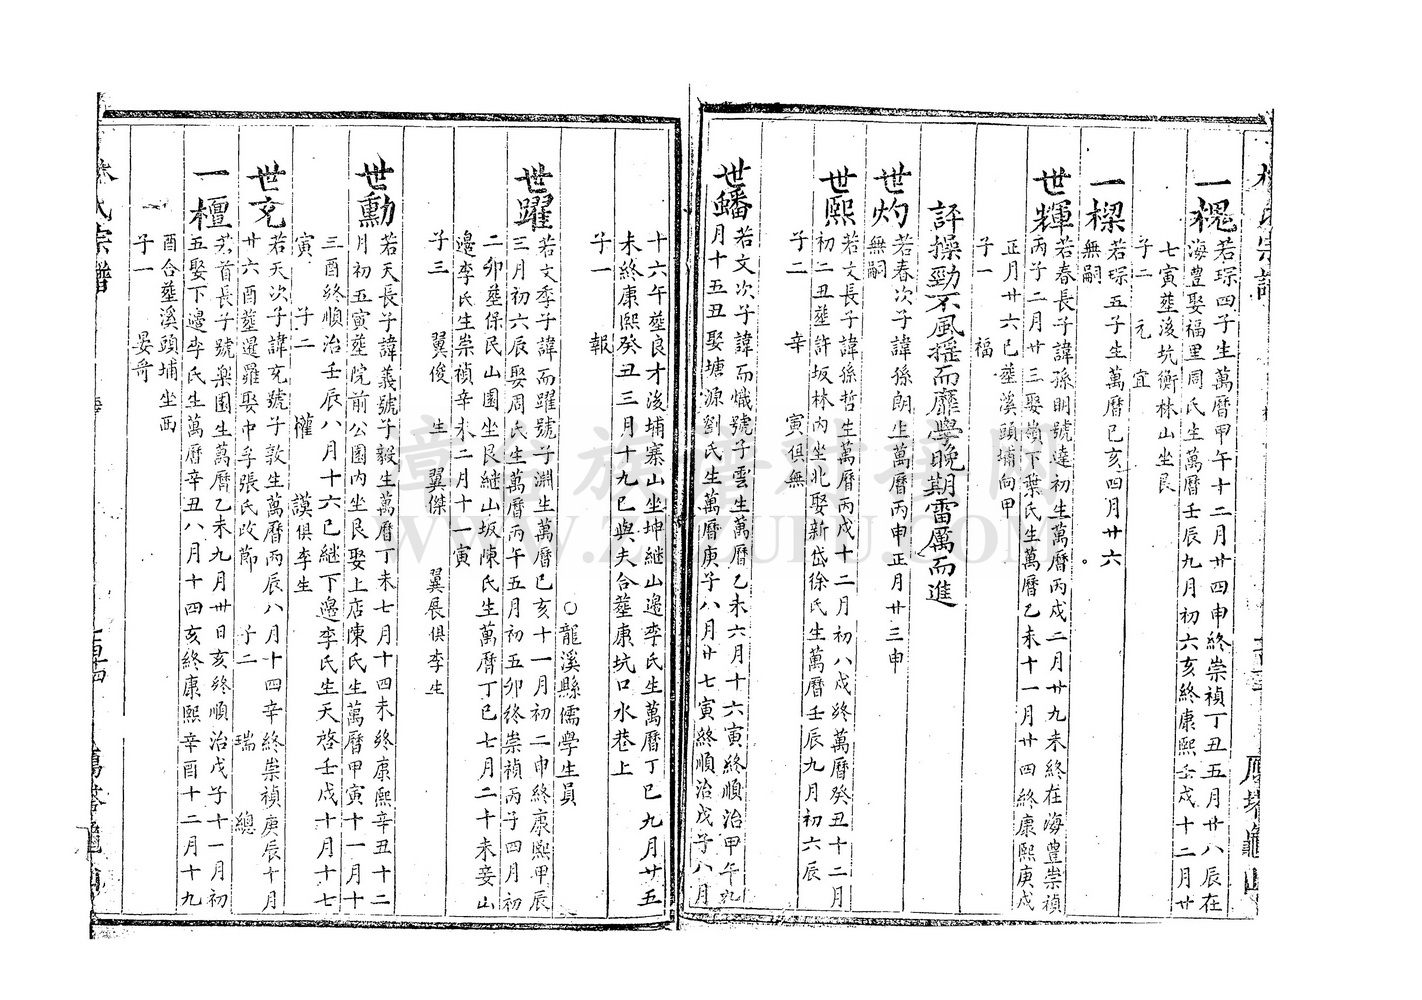 一槐
若琛四子生萬曆甲午十二月廿四申終崇禎丁丑五月廿八辰在
海豊娶福里周氏生萬曆壬辰九月初六亥終康熙壬戌十二月廿
七寅塟浚坑衡林山坐艮
子二 元 宜
一樑
若琛五子生萬曆己亥四月廿六
無嗣
世輝
若春長子諱孫明號達初生萬曆丙戌二月廿九未終在海豊崇禎
丙子二月廿三娶嶺下葉氏生萬曆乙未十一月廿四終康熙庚戌
正月廿六巳塟溪頭埔向甲
子一 福
評操勁不風搖而靡學晚期雷厲而進
世灼
若春次子諱孫朗生萬曆丙申正月廿三申
無嗣
世熙
若文長子諱孫哲生萬曆丙戌十二月初八戌終萬曆癸丑十二月
初二丑塟許坂林內坐北娶新岱徐氏生萬曆壬辰九月初六辰
子二 幸 寅俱無
世蟠
若文次子諱而熾號子雲生萬曆乙未六月十六寅終順治甲午九
月十五丑娶塘源劉氏生萬曆庚子八月廿七寅終順治戊子八月
十六午塟良才浚埔寨山坐坤継山邊李氏生萬曆丁巳九月廿五
未終康熙癸丑三月十九巳與夫合塟康坑口水巷上
子一 報
○龍溪縣儒學生員
世躍
若文季子諱而躍號子淵生萬曆己亥十一月初二申終康熙甲辰
三月初六辰娶周氏生萬曆丙午五月初五卯終崇禎丙子四月初
二卯塟保民山園坐艮継山坂陳氏生萬曆丁巳七月二十未妾山
邊李氏生崇禎辛未二月十一寅
子三 翼俊 生 翼傑 翼展俱李生
世勳
若天長子諱義號子毅生萬曆丁未七月十四未終康熙辛丑十二
月初五寅塟院前公園內坐艮娶上店陳氏生萬曆甲寅十一月十
三酉終順治壬辰八月十六巳継下邊李氏生天啓壬戌十月十七
寅 子二 權 謨俱李生
世充
若天次子諱充號子敦生萬曆丙辰八月十四辛終崇禎庚辰十月
廿六酉塟暹羅娶中孚張氏改節 子二 瑞 總
一檀
若首長子號樂園生萬曆乙未九月卅日亥終順治戊子十一月初
五娶下邊李氏生萬曆辛丑八月十四亥終康熙辛酉十二月十九
酉合塟溪頭埔坐西
子一 晏哥
氏宗譜
漳台族譜對接網
WWW.ZTZUPU.COM